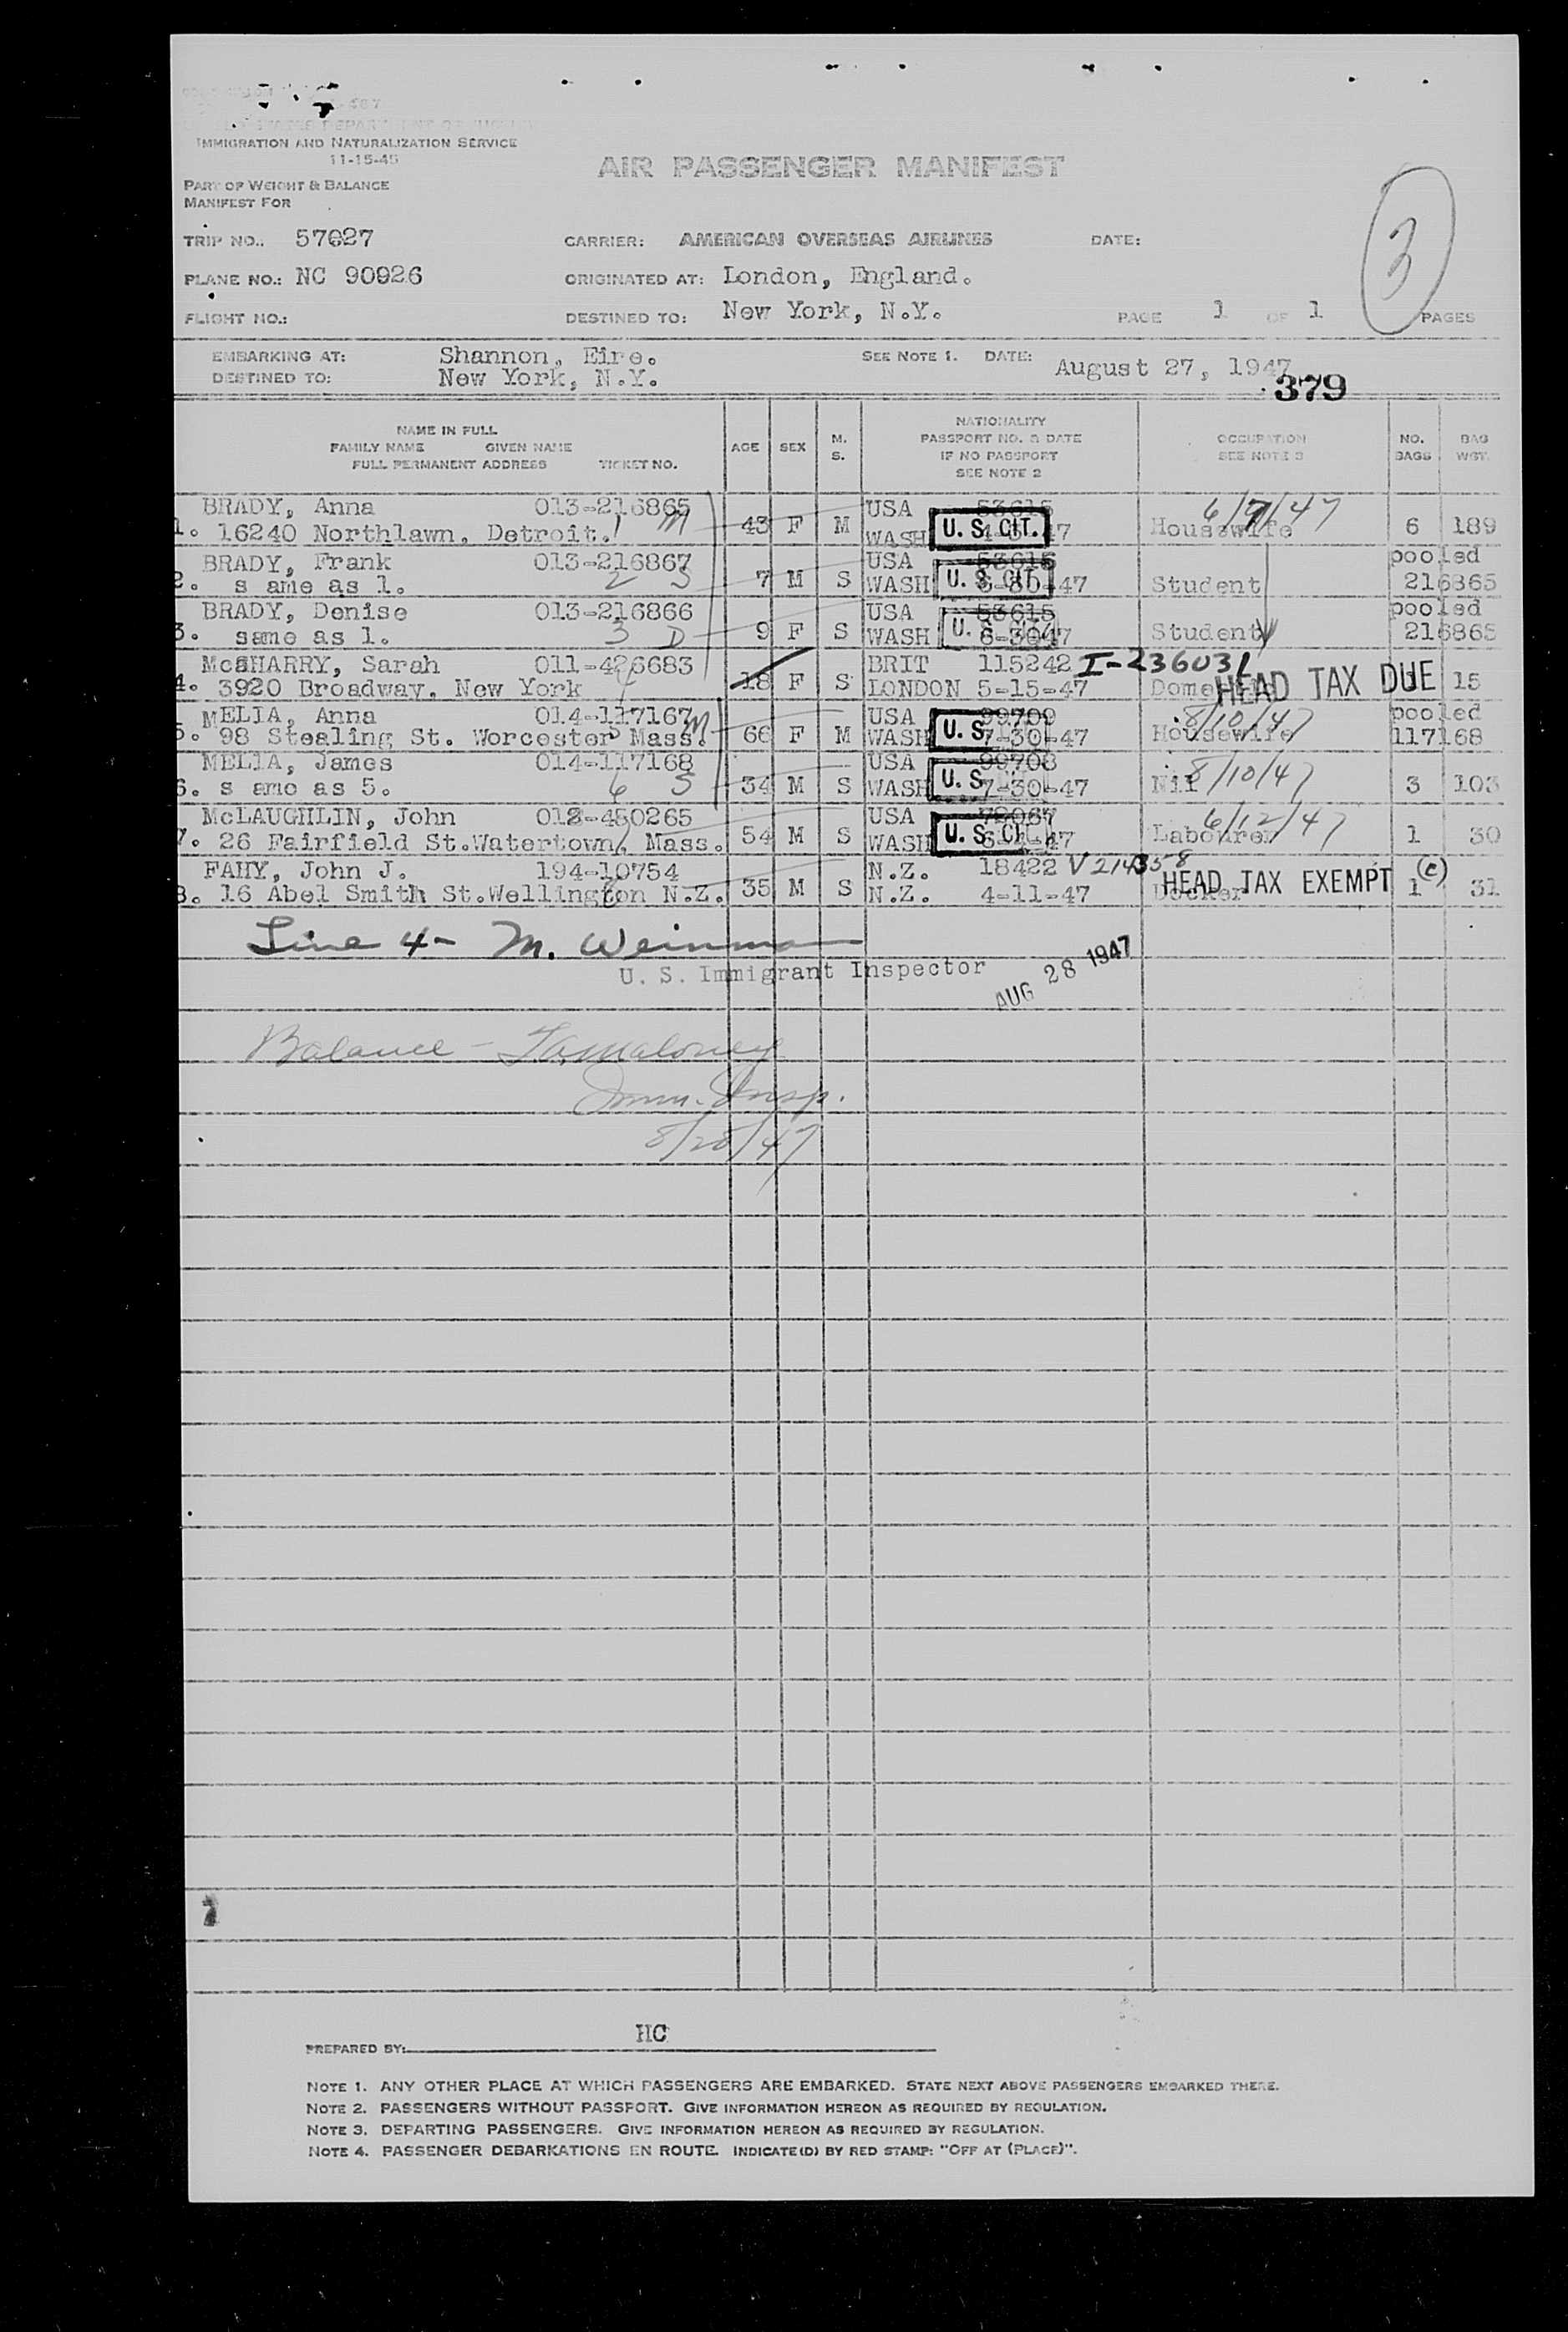 IMMIGRATION AND NATURALIZATION SERVICE
11-15-45
AIR PASSENGER MANIFEST
PART OF WEIGHT & BALANCE
MANIFEST FOR
3
TRIP NO.: 57027 CARRIER: AMERICAN OVERSEAS AIRLINES DATE:
PLANE NO.: NC 90926 ORIGINATED AT: London, England.
FLIGHT NO.: DESTINED TO: New York, N.Y. PAGE 1 OF 1 PAGES
EMBARKING AT: Shannon, Eire. SEE NOTE 1. DATE: August 27, 1947
DESTINED TO: New York, N.Y.
379
NAME IN FULL
FAMILY NAME GIVEN NAME
FULL PERMANENT ADDRESS TICKET NO.
AGE SEX M. S.
NATIONALITY
PASSPORT NO. & DATE
IF NO PASSPORT
SEE NOTE 2
OCCUPATION
SEE NOTE 3
NO. BAGS
BAG WGT.
BRADY, Anna 013-216865 USA 53615 6/7/47
1. 16240 Northlawn, Detroit. 1 M 43 F M WASH U. S. CIT. 47 Housewife 6 189
BRADY, Frank 013-216867 USA 53615 pooled
2. s ame as 1. 2 S 7 M S WASH U. S. CIT. 6-30-47 Student 216865
BRADY, Denise 013-216866 USA 53615 pooled
3. same as 1. 3 D 9 F S WASH U. S. 6-3047 Student 216865
McSHARRY, Sarah 011-426683 BRIT 115242 I-236031
4. 3920 Broadway, New York 18 F S LONDON 5-15-47 HEAD TAX DUE 15
MELIA, Anna 014-117167 USA 99709 8/10/47 pooled
5. 98 Stealing St. Worcester Mass. M 66 F M WASH U. S. 7-30-47 Housewife 117168
MELIA, James 014-117168 USA 99708 8/10/47
6. s ame as 5. 6 S 34 M S WASH U. S. 7-30-47 Nil 3 103
McLAUGHLIN, John 012-450265 USA 72067 6/12/47
7. 26 Fairfield St.Watertown, Mass. 54 M S WASH U. S. CIT. 47 Labourer 1 30
FAHY, John J. 194-10754 N.Z. 18422 V214358
8. 16 Abel Smith St.Wellington N.Z. 35 M S N.Z. 4-11-47 Docker HEAD TAX EXEMPT 1 (c) 31
Line 4- M. Weinman
U. S. Immigrant Inspector AUG 28 1947
Balance - Maloney
Imm. Insp.
8/28/47
PREPARED BY: HC
NOTE 1. ANY OTHER PLACE AT WHICH PASSENGERS ARE EMBARKED. STATE NEXT ABOVE PASSENGERS EMBARKED THERE.
NOTE 2. PASSENGERS WITHOUT PASSPORT. GIVE INFORMATION HEREON AS REQUIRED BY REGULATION.
NOTE 3. DEPARTING PASSENGERS. GIVE INFORMATION HEREON AS REQUIRED BY REGULATION.
NOTE 4. PASSENGER DEBARKATIONS EN ROUTE. INDICATE(D) BY RED STAMP: "OFF AT (PLACE)".